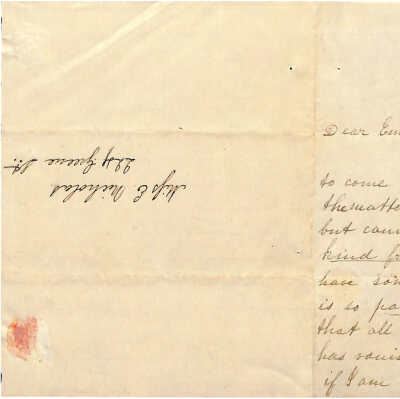 Miss E Nicholas
Greene St.
Dear Em
to come
thematte
but cann
kind f
have som
is so pa
that all
has vanis
if I am